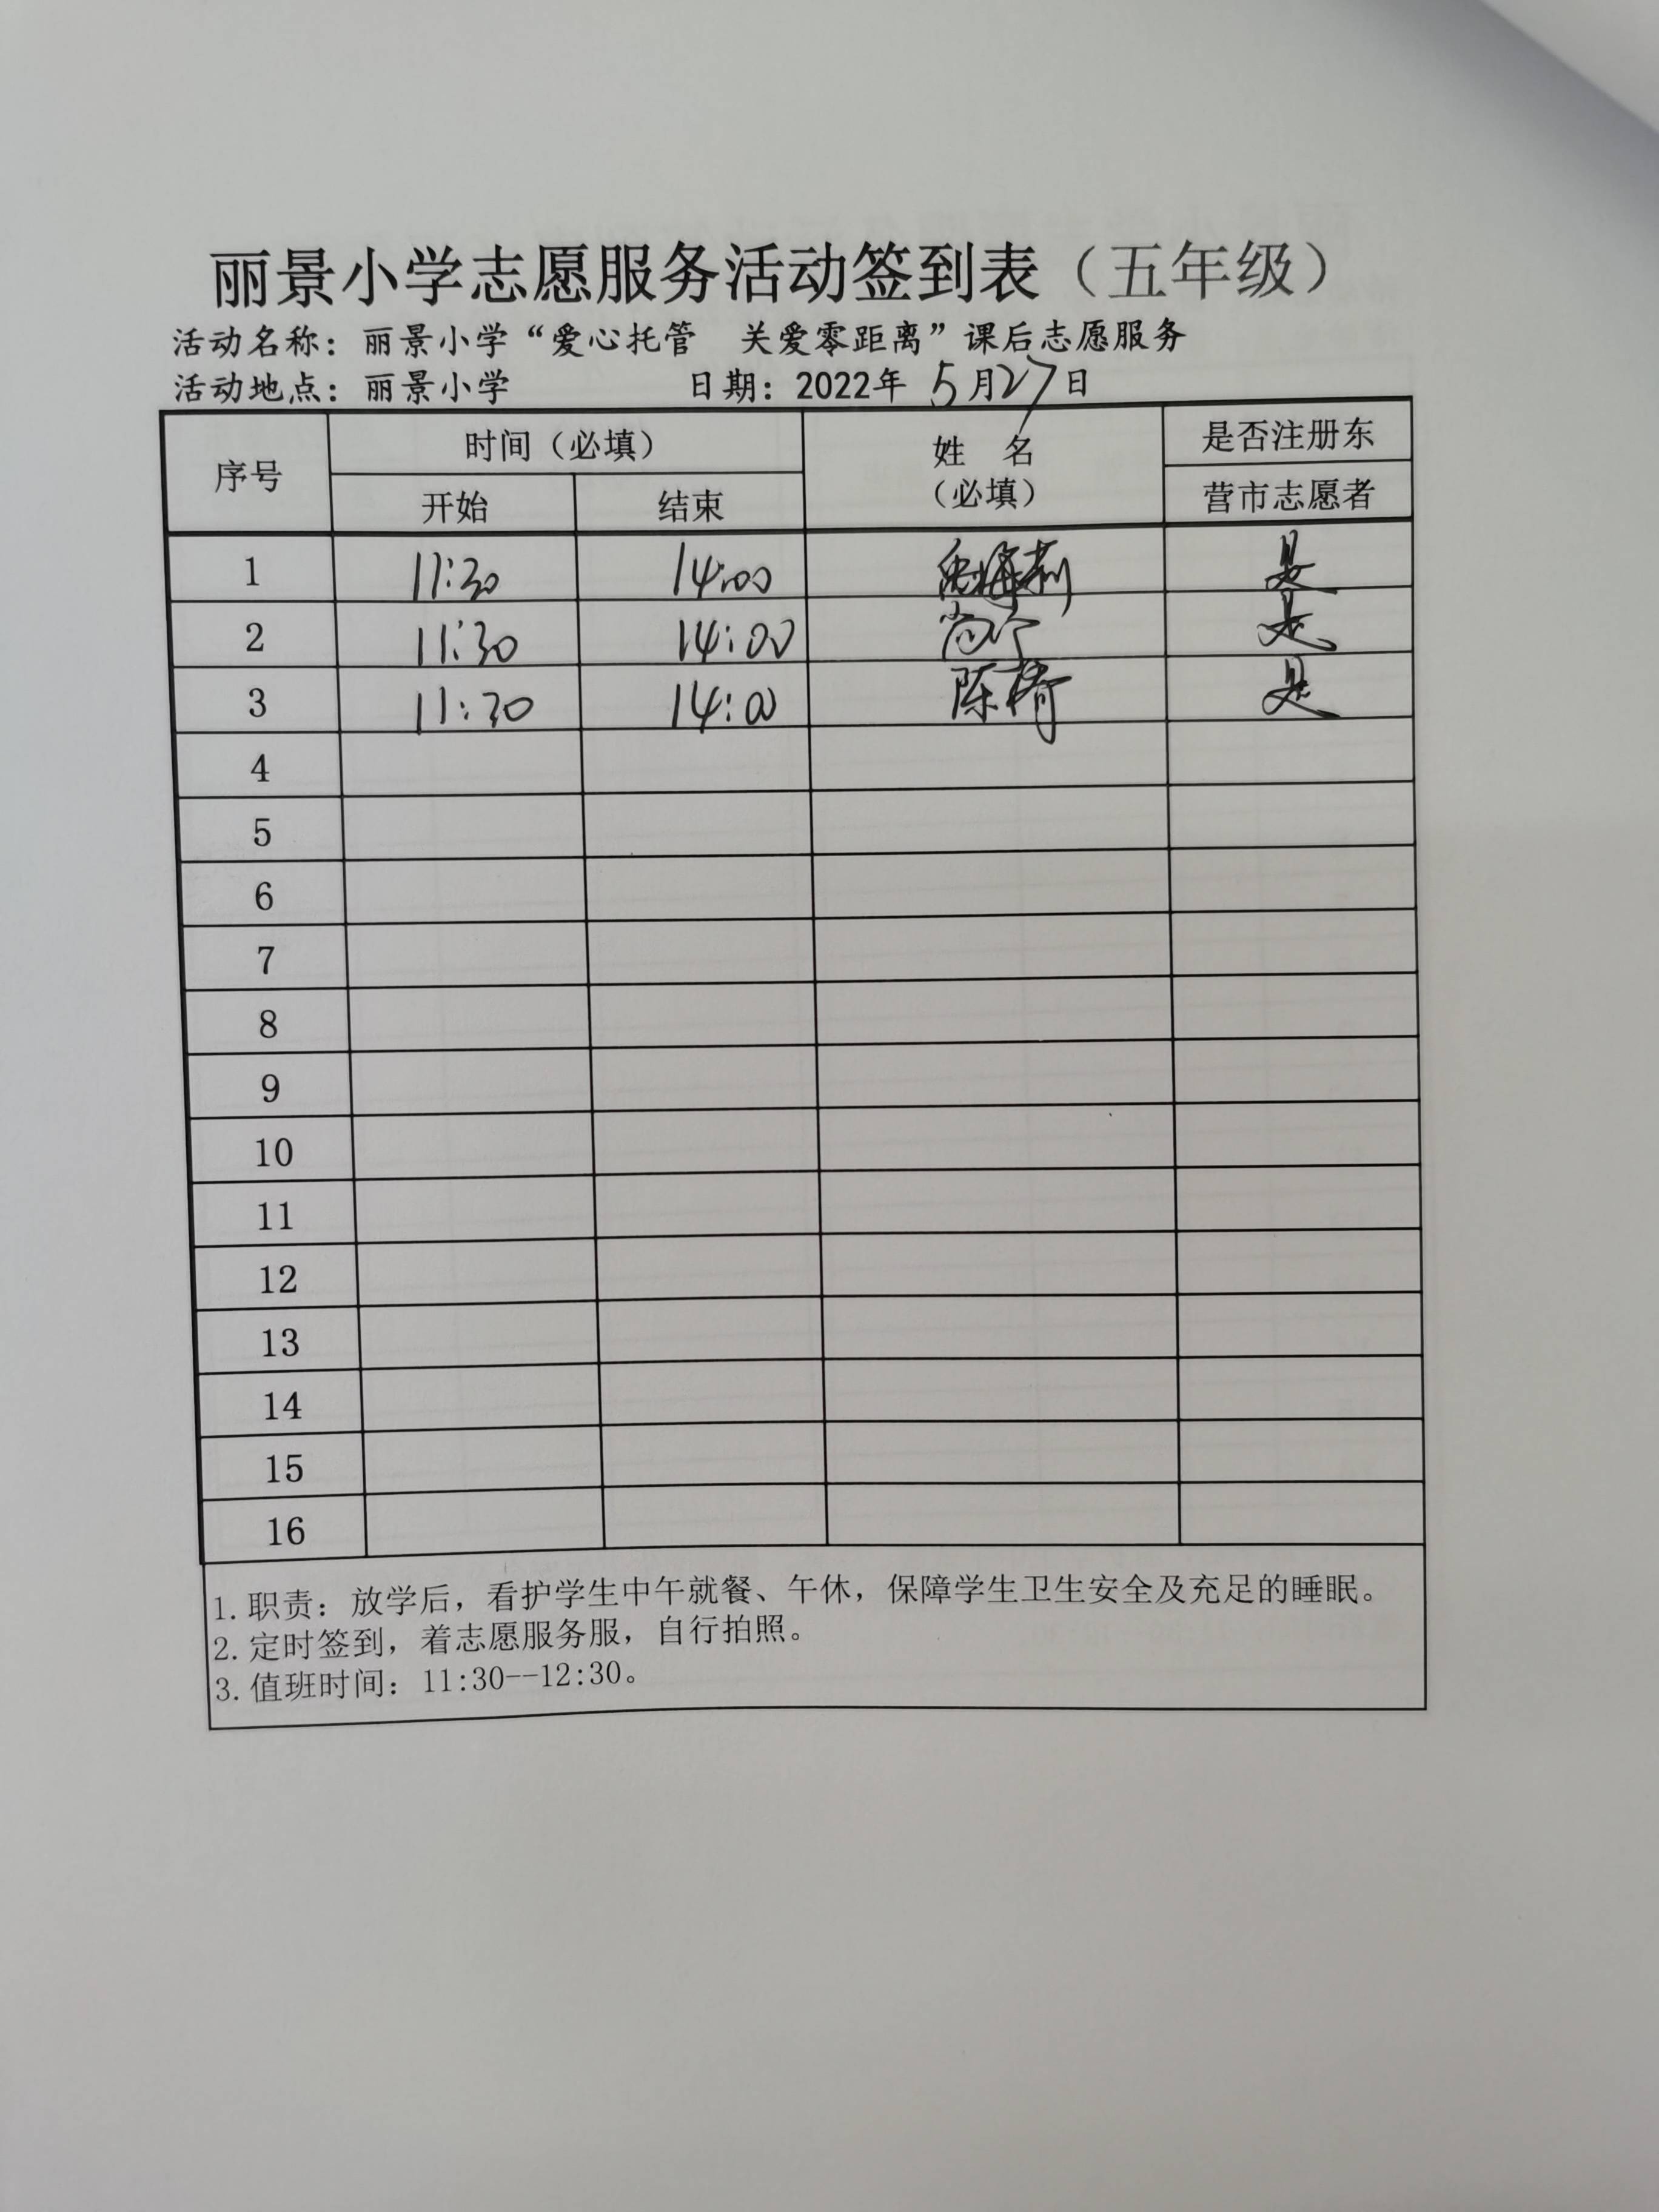 丽景小学志愿服务活动签到表（五年级）
活动名称：丽景小学“爱心托管 关爱零距离”课后志愿服务
活动地点：丽景小学 日期：2022年5月27日
序号 时间（必填） 姓 名（必填） 是否注册东营市志愿者
开始 结束
1 11:30 14:00 是
2 11:30 14:00 尚宁 是
3 11:30 14:00 陈椅 是
4
5
6
7
8
9
10
11
12
13
14
15
16
1.职责：放学后，看护学生中午就餐、午休，保障学生卫生安全及充足的睡眠。
2.定时签到，着志愿服务服，自行拍照。
3.值班时间：11:30--12:30。